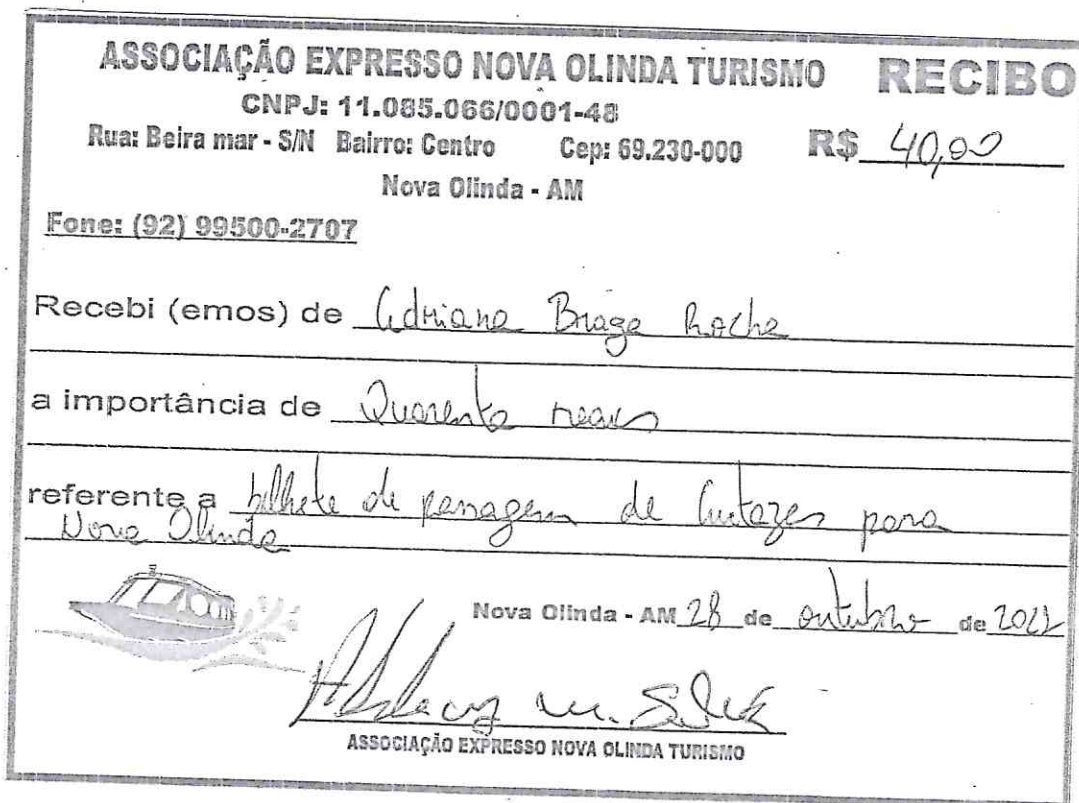 ASSOCIAÇÃO EXPRESSO NOVA OLINDA TURISMO RECIBO
CNPJ: 11.085.066/0001-48
Rua: Beira mar - S/N Bairro: Centro Cep: 69.230-000 R$ 40,00
Nova Olinda - AM
Fone: (92) 99500-2707
Recebi (emos) de Adriana Braga Rocha
a importância de Quarenta reais
referente a bilhete de passagem de Autazes para
Nova Olinda
Nova Olinda - AM 28 de outubro de 2022
ASSOCIAÇÃO EXPRESSO NOVA OLINDA TURISMO